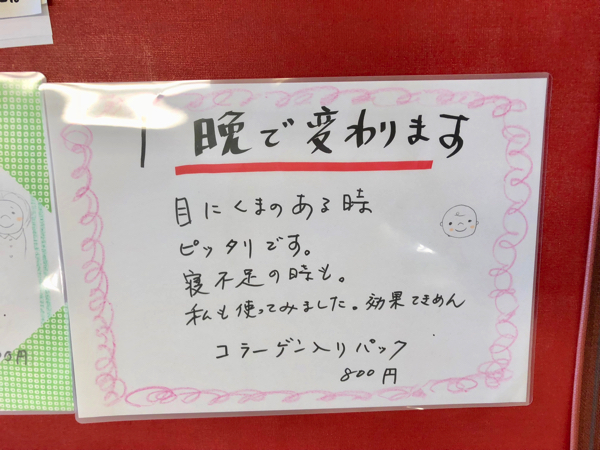 1晩で変わります
目にくまのある時
ピッタリです。
寝不足の時も。
私も使ってみました。効果てきめん
コラーゲン入りパック
800円
円